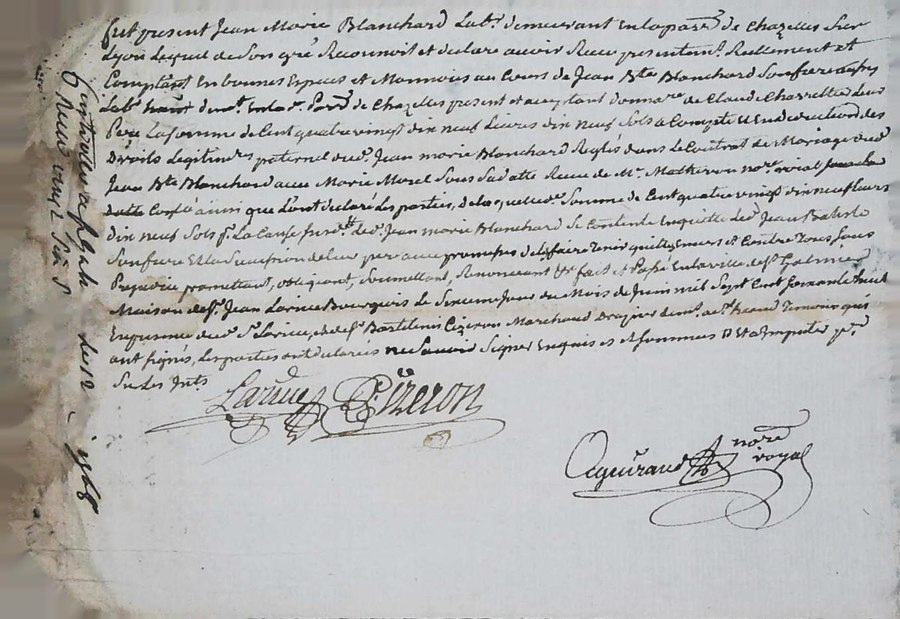 fut present Jean Marie Blanchard Labr. demeurant en la parr. de Chazelles sur
Lyon Lequel de Son gré Reconnoit et declare avoir Receu presentemt. Reellement et
Comptant En bonnes Especes et Monnoies au Cours de Jean Bte Blanchard Son frere
Labr. demt. En lad. Parr. de Chazelles present et acceptant donnare. de Claude Leur
Pere La somme de Cent quatre vingt dix neuf Livres dix neuf Sols a Compte
Droits Legitimes paternel dud. Jean marie Blanchard Reglés dans Le Contrat de Mariage dud.
Jean Bte Blanchard avec Marie Morel Sous Sa datte Receu de Me. Matheron nore. roial
datte ainsi que L'ont declaré Les parties, de laquelle Somme de Cent quatre vingt dix neuf Livres
dix neuf Sols pr. La Cause susd. led. Jean marie Blanchard Se Contente En quitte led. Jean Batiste
Son frere Et La Succession de leur pere avec promesse de le faire Tenir quitte Envers et Contre Tous Sans
Prejudice promettant, obligeant, Soumettant, Renonceant &c fait et Passé En la ville de St. Galmier
Maison de Sr. Jean Larive Bourgeois Le Sixieme Jour du Mois de Juin mil Sept Cent Soixante huit
En presence dud. Sr. Larive, & de Sr. Bartelemi Cizeron Marchand Drapier demt. aud. Temoins qui
ont signés, Les parties ont declarées ne Scavoir Signer Enquis et Sommes
Sur Les
Larive Cizeron
Aguiraud nore
royal